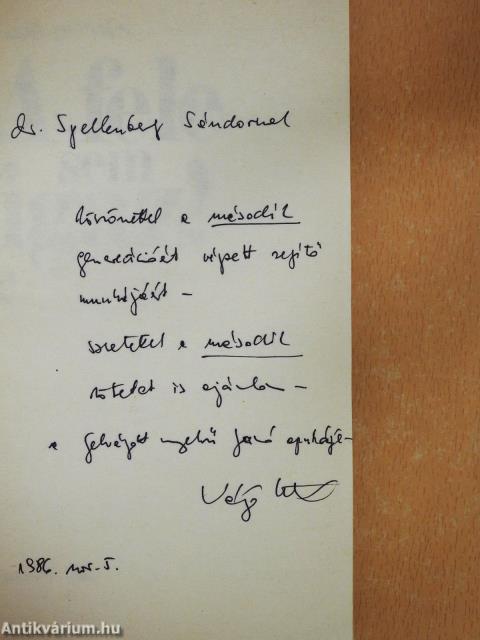 Dr. Szellenberg Sándornak
köszönettel a második
generációért végzett segítő
munkájáért –
szeretettel a második
kötetet is ajánlva –
a felvágott nyelvű Janó apukája –
1986. nov. 5.
Antikvárium.hu